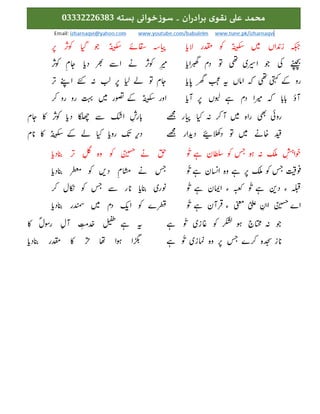 محمد علی نقوی برادران ۔ سوزخوانی بستہ 03332226383
Email: izharnaqvi@yahoo.com www.youtube.com/babalelm www.tune.pk/izharnaqvi
جبکہ زنداں میں سکینہؑ کو مقدر لایا پیاسہ سقائے سکینہؑ جو گیا کوثر پر
بچپنے کی جو اسیری تھی تو دم گھبرایا میرِ کوثر نے اسے بھر دیا جامِ کوثر
رو کے کہتی تھی کہ اماں یہ عجب گھر پایا جام تو لے لیا پر لب نہ کئے اپنے تر
آؤ بابا کہ میرا دم ہے لبوں پر آیا اور سکینہؑ کے تصور میں بہت رو رو کر
روئی بھی راہ میں آ کر نہ کیا پیار مجھے بارشِ اشک سے چھلکا دیا کوثر کا جام
قید خانے میں تو دکھلائیے دیدار مجھے دیر تک رویا کیا لے کے سکینہؑ کا نام
خواہشِ ملک نہ ہو جس کو سلطان ہے تُو حق نے حسینی کو وہ گل تر بنادیا
فوقیت جس کو ملک پر ہے وہ انسان ہے تُو جس نے مشامِ دیں کو معطر بنادیا
قبلہ ء دین ہے تُو کعبہ ء ایمان ہے تُو نوری بنایا نار سے جس کو نکال کر
اے حسینؑ ابنِ علیؑ معنیٔ ء قرآن ہے تُو قطرے کو ایک دم میں سمندر بنادیا
جو نہ محتاج ہو لشکر کو غازی تُو ہے یہ ہے طفیل خدمتِ آلِ رسولؐ کا
ناز سجدہ کرے جس پر وہ نمازی تُو ہے بگڑا ہوا تھا حُر کا مقدر بنادیا